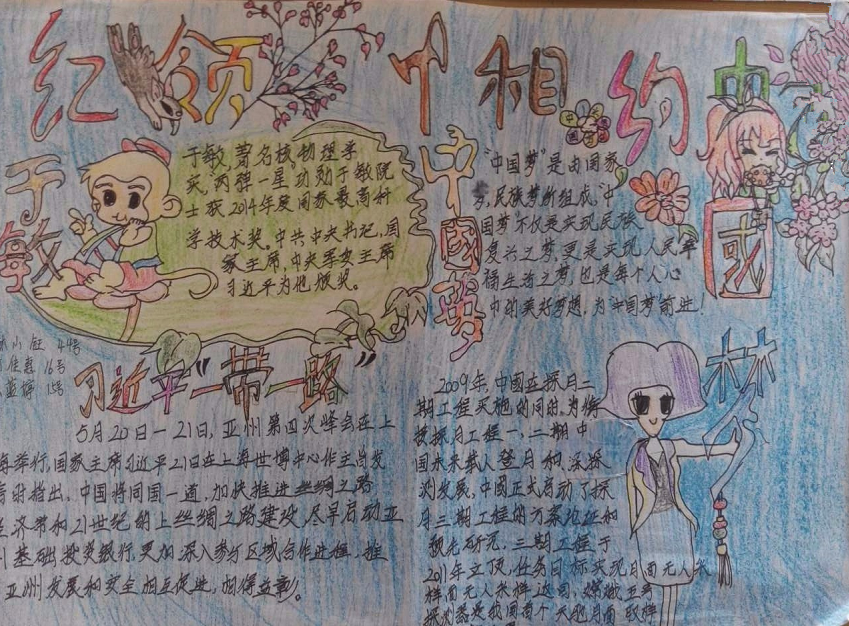 红领巾相约中
国
于敏
于敏 著名核物理学
家"两弹一星功勋于敏院
士获2014年度国家最高科
学技术奖。中共中央书记,国
家主席,中央军委主席
习近平为他颁奖。
中國夢
"中国梦"是由国家
梦,民族梦所组成,"中
国梦不仅是实现民族
复兴之梦,更是实现人民幸
福生活之梦,也是每个人心
中的美好梦想,为"中国梦"前进!
44号
16号
15号
习近平"一带一路"
5月20日一21日,亚州第四次峰会在上
海举行,国家主席习近平21日在上海世博中心作主旨发
言时指出,中国将同国一道,加快推进丝绸之路
经济带和21世纪的上丝绸之路建设,尽早启动亚
基础投资银行,更加深入参与区域合作进程,推
亚州发展和安全相互促进,相得益彰。
2009年,中国在探月二
期工程实施的同时,为衔
接探月工程一,二期中
国未来载人登月和深探
测发展,中国正式启动了探
月三期工程的方案论证和
预先研究,三期工程于
2011年立项,任务目标实现月面无人采
样面无人采样返回,嫦娥五号
探测器是我国首个 月面取样